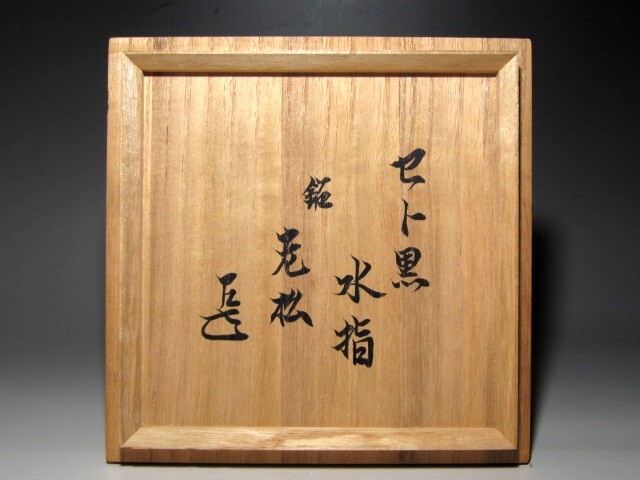 セト黒
水指
銘
老松